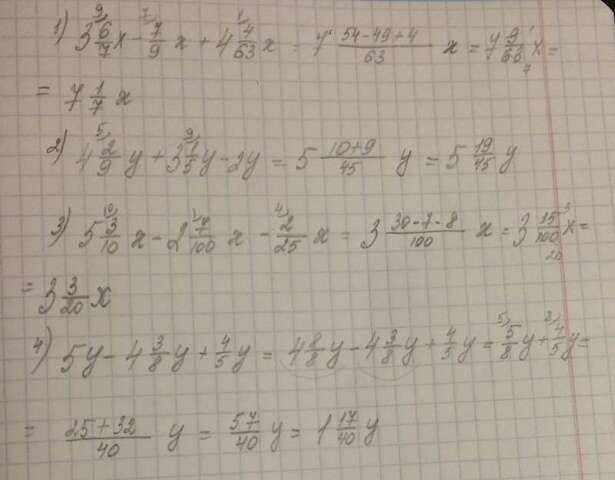 1) 3 6/7 x - 7/9 x + 4 4/63 x = 7 (54-49+4)/63 x = 7 9/63 x =
= 7 1/7 x
2) 4 2/9 y + 3 1/5 y - 2y = 5 (10+9)/45 y = 5 19/45 y
3) 5 3/10 x - 2 7/100 x - 2/25 x = 3 (30-7-8)/100 x = 3 15/100 x =
= 3 3/20 x
4) 5y - 4 3/8 y + 4/5 y = 4 8/8 y - 4 3/8 y + 4/5 y = 5/8 y + 4/5 y =
= (25+32)/40 y = 57/40 y = 1 17/40 y